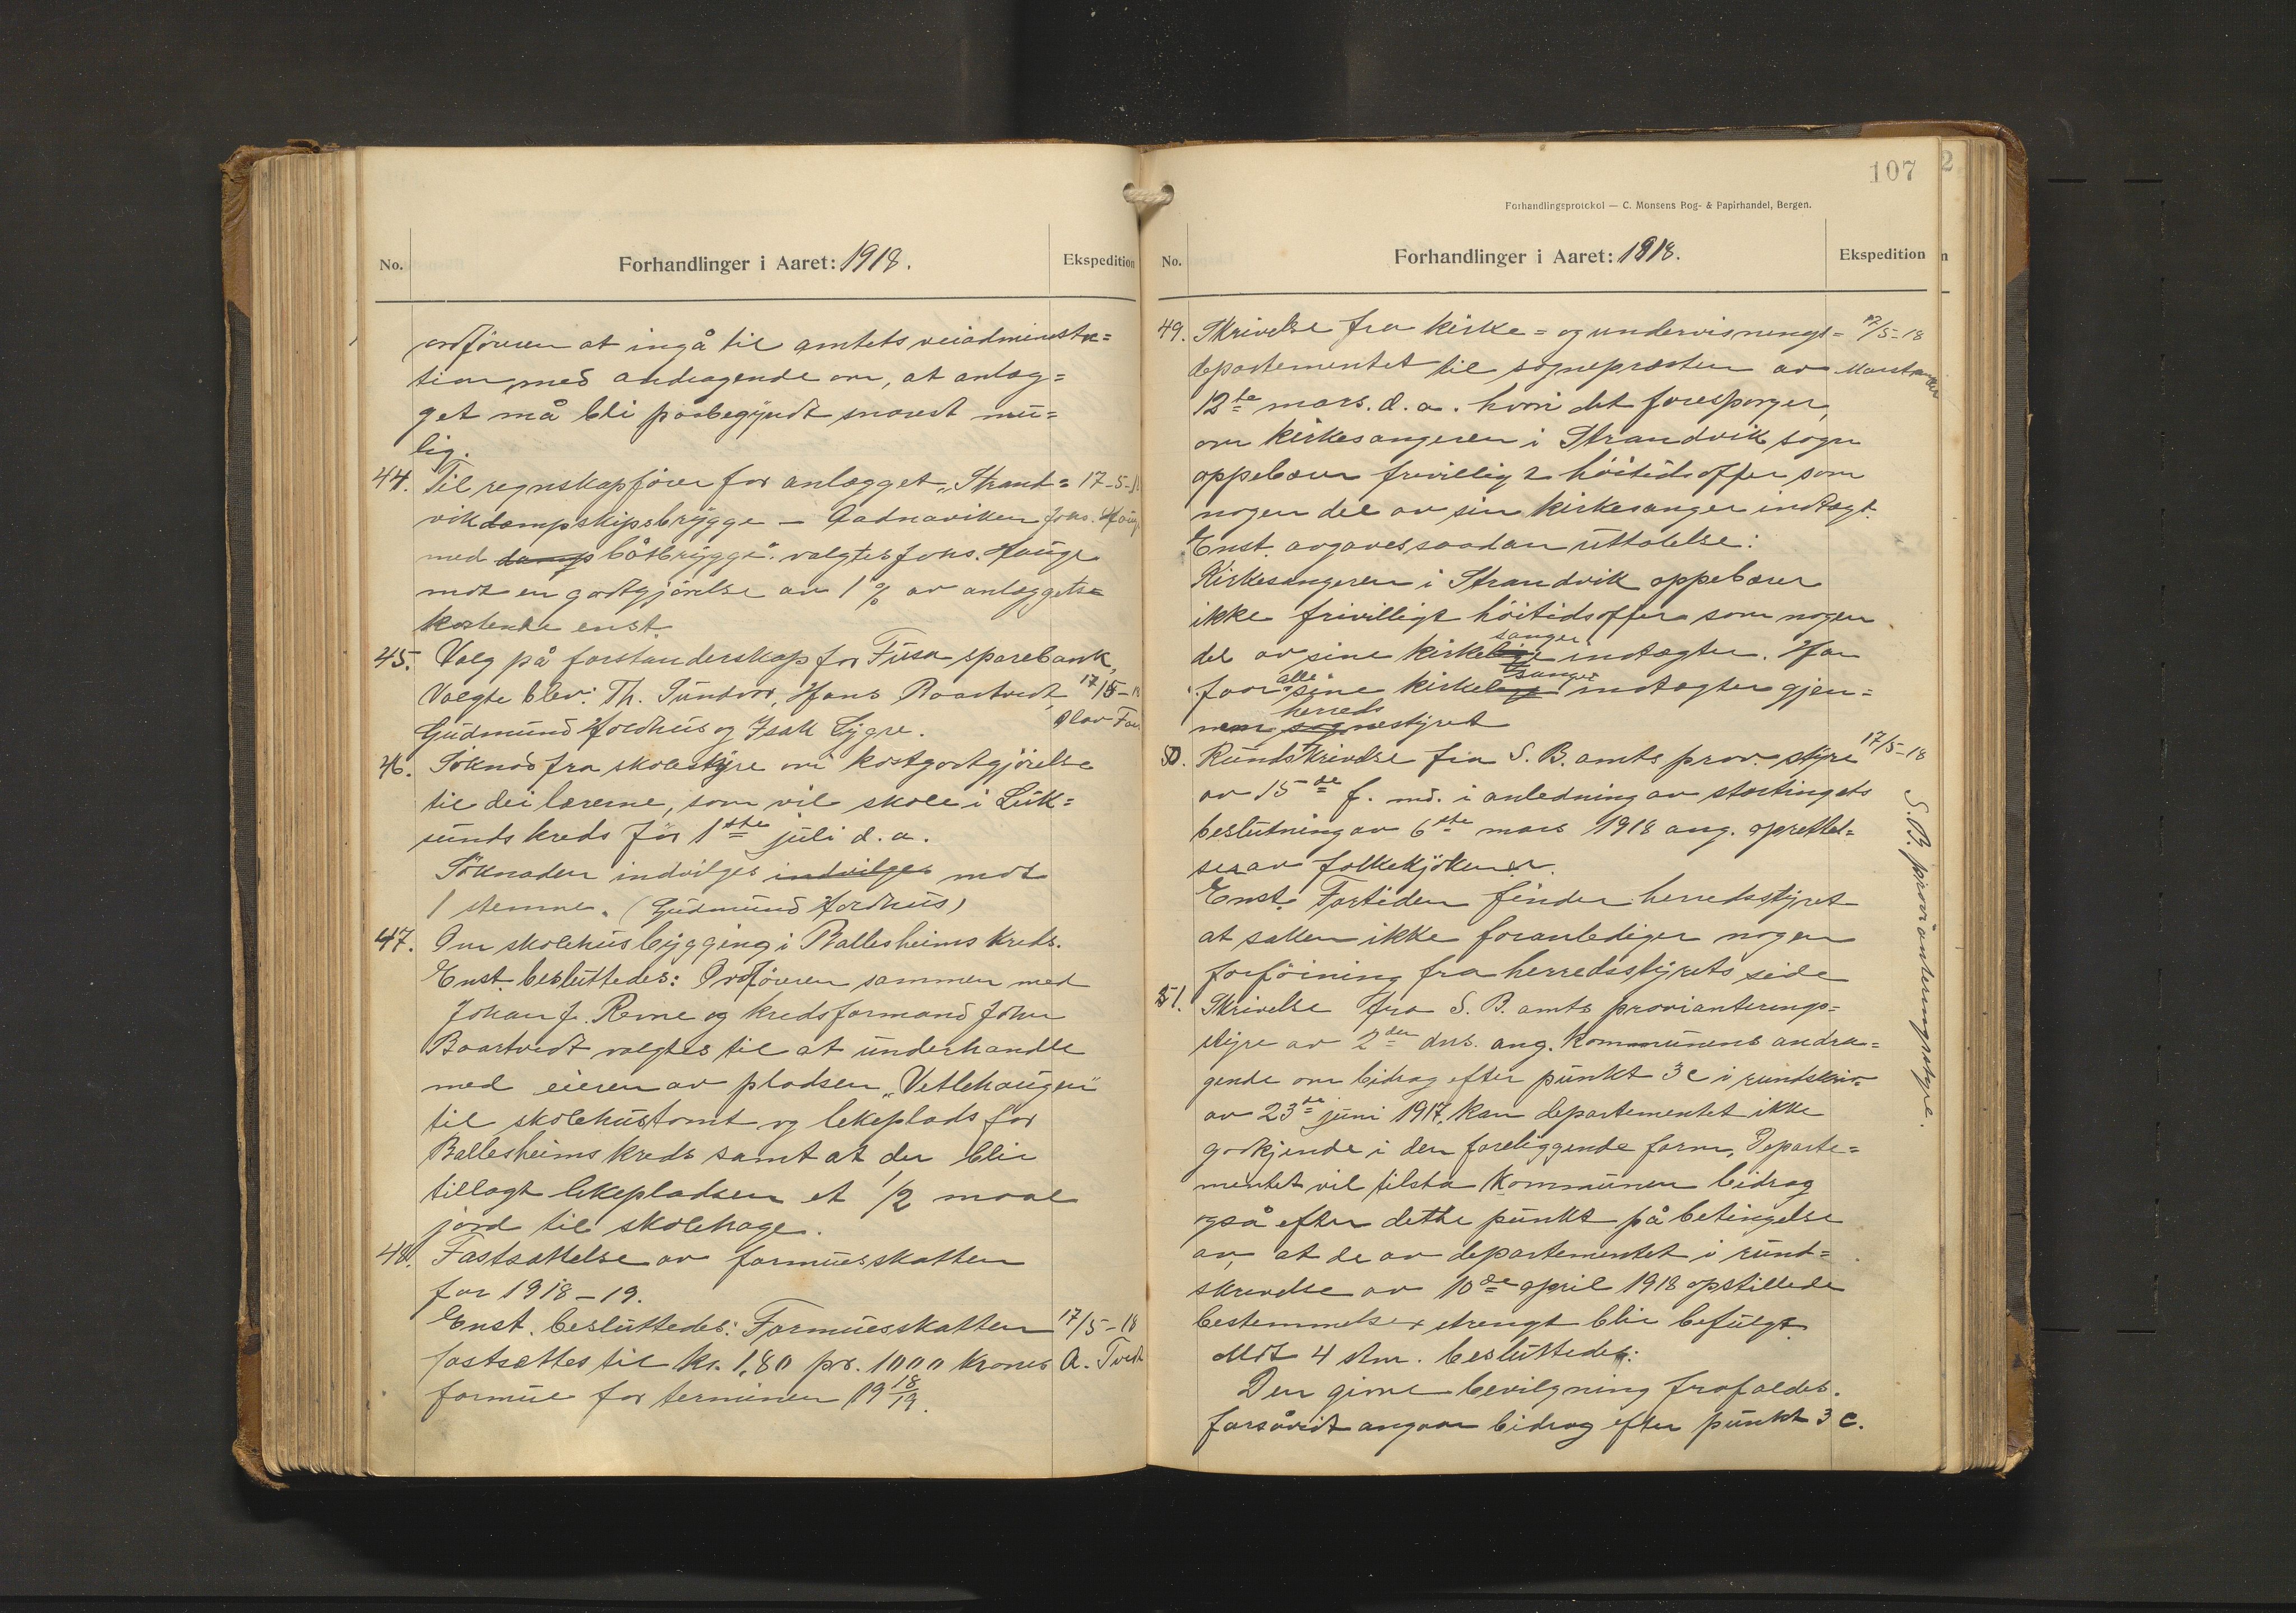 No.
Forhandlinger i Aaret: 1918.
Ekspedition
ordföreren at ingå til amtets veiadministra=
tion, med andragende om, at anlæg=
get må bli påbegyndt snarest mu=
lig.
44. Til regnskapförer for anlægget „Strand= 17-5-
vik dampskipsbrygge – Gadnaviken Joks. Haug
med damp båtbrygge". valgtes Joks. Hauge
mot en godtgjörelse av 1 % av anlæggets
kostende enst.
45. Valg på forstanderskap for Fusa sparebank,
Valgte blev: Th. Sundvor, Hans Baartvedt, 17/5-18
Gudmund Holdhus og Isak Lygre. Olav
46. Söknad fra skolestyre om kostgodtgjörelse
til dei lærerne, som vil skole i Luk=
sunds kreds för 1ste juli d.a.
Söknaden indvilges indvilges mot
1 stemme. (Gudmund Holdhus)
47. Om skolehusbygging i Ballesheims kreds.
Enst. besluttedes: Ordföreren sammen med
Johan J. Reme og kredsformand John
Baartvedt valgtes til at underhandle
med eieren av pladsen „Vetlehaugen"
til skolehustomt og lekeplads for
Ballesheims kreds samt at der blir
tillagt lekepladsen et 1/2 maal
jord til skolehage.
48. Fastsættelse av formuesskatten
for 1918-19.
Enst. besluttedes: Formuesskatten 17/5-18
fastsættes til kr. 1,80 pr. 1000 kroners A. Tvedt
formue for terminen 19 18/19.
107
Forhandlingsprotokol — C. Monsens Bog- & Papirhandel, Bergen.
No.
Forhandlinger i Aaret: 1918.
Ekspedition
49. Skrivelse fra kirke= og undervisnings= 17/5-18
departementet til sognepresten av
12te mars. d.a. hvori det foresporger,
om kirkesangeren i Strandvik sogn
oppebærer frivilligt höitidsoffer som
nogen del av sin kirkesanger indtægt.
Enst. avgaves saadan uttalelse:
Kirkesangeren i Strandvik oppebærer
ikke frivilligt höitidsoffer som nogen
sanger
del av sine kirkelige indtægter. Han
alle sanger
faar sine kirkelige indtægter gjen=
herreds
nem sognestyret
50. Rundskrivelse fra S. B. amts prov. styre 17/5-18
av 15de f. md. i anledning av stortingets
beslutning av 6te mars 1918 ang. oprettel=
se av folkekjökener.
Enst. Fortiden finder herredsstyret
at saken ikke foranlediger nogen
forföining fra herredsstyrets side
51. Skrivelse fra S. B. amts provianterings=
styre av 2den dns. ang. kommunens andra=
gende om bidrag efter punkt 3 c i rundskriv.
av 23de juni 1917. kan departementet ikke
godkjende i den foreliggende form, Departe=
mentet vil tilstå kommunen bidrag
også efter dette punkt på betingelse
av, at de av departementet i rund=
skrivelse av 10de april 1918 opstillede
bestemmelser strengt blir befulgt.
Mot 4 stm. besluttedes:
Den givne bevilgning frafaldes.
forsåvidt angaar bidrag efter punkt 3 c.
S. B. provianteringsstyre.